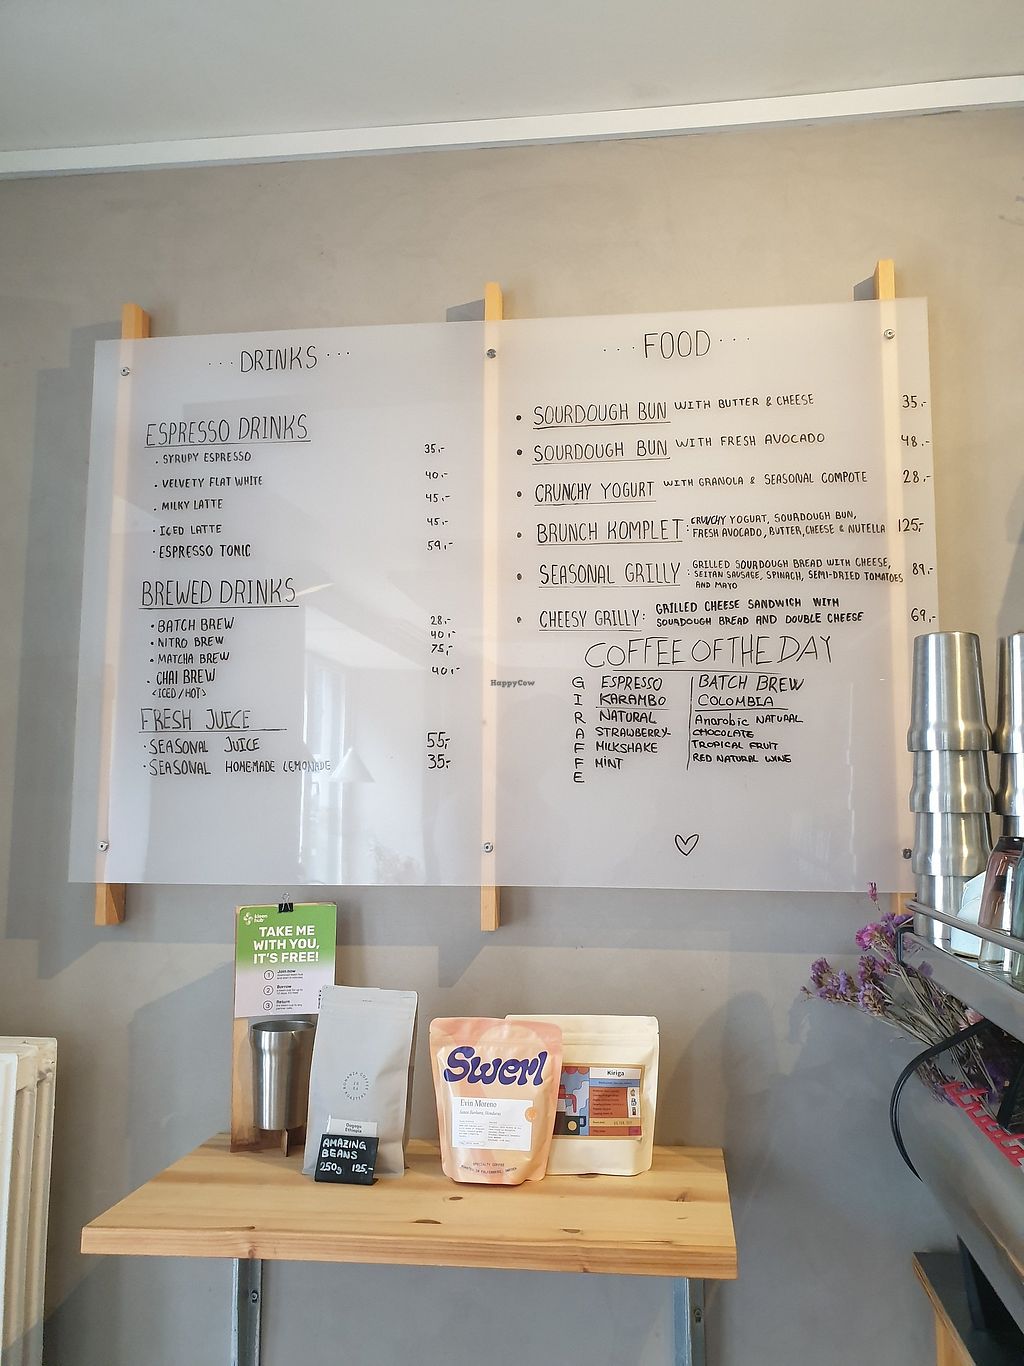 ... DRINKS ...
ESPRESSO DRINKS
• SYRUPY ESPRESSO 35,-
• VELVETY FLAT WHITE 40,-
• MILKY LATTE 45,-
• ICED LATTE 45,-
• ESPRESSO TONIC 59,-
BREWED DRINKS
• BATCH BREW 28,-
• NITRO BREW 40,-
• MATCHA BREW 75,-
• CHAI BREW 40,-
<ICED/HOT>
FRESH JUICE
• SEASONAL JUICE 55,-
• SEASONAL HOMEMADE LEMONADE 35,-
... FOOD ...
• SOURDOUGH BUN WITH BUTTER & CHEESE 35,-
• SOURDOUGH BUN WITH FRESH AVOCADO 48,-
• CRUNCHY YOGURT WITH GRANOLA & SEASONAL COMPOTE 28,-
• BRUNCH KOMPLET: CRUNCHY YOGURT, SOURDOUGH BUN, 125,-
FRESH AVOCADO, BUTTER, CHEESE & NUTELLA
• SEASONAL GRILLY: GRILLED SOURDOUGH BREAD WITH CHEESE, 89,-
SEITAN SAUSAGE, SPINACH, SEMI-DRIED TOMATOES
AND MAYO
• CHEESY GRILLY: GRILLED CHEESE SANDWICH WITH 69,-
SOURDOUGH BREAD AND DOUBLE CHEESE
COFFEE OF THE DAY
GIRAFFE
ESPRESSO
KARAMBO
NATURAL
STRAWBERRY-
MILKSHAKE
MINT
BATCH BREW
COLOMBIA
Anarobic NATURAL
CHOCOLATE
TROPICAL FRUIT
RED NATURAL WINE
HappyCow
kleen hub
TAKE ME
WITH YOU,
IT'S FREE!
1 Join now
2 Borrow
3 Return
BONANZA COFFEE ROASTERS
Ethiopia
AMAZING
BEANS
250g 125,-
Swerl
Evin Moreno
Santa Barbara, Honduras
SPECIALTY COFFEE
ROASTED IN FALKENBERG, SWEDEN
Kiriga